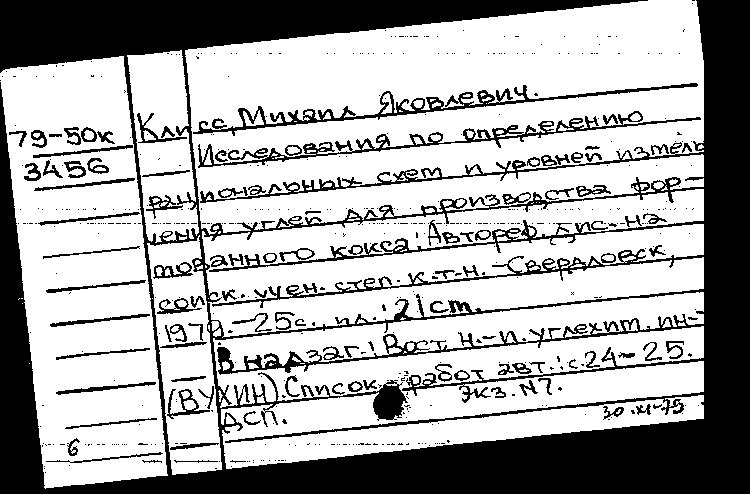 79-50к
3456
Клисс, Михаил Яковлевич.
Исследования по определению
рациональных схем и уровней измель
чения углей для производства фор-
мованного кокса: Автореф. дис. на
соиск. учен. степ. к.т.н. - Свердловск,
1979. - 25с., ил.; 21 cm.
В надзаг.: Вост. н.-и. углехим. ин-т
(ВУХИН). Список работ авт.: с. 24-25.
Экз. №7.
ДСП.
30.XI-79
6